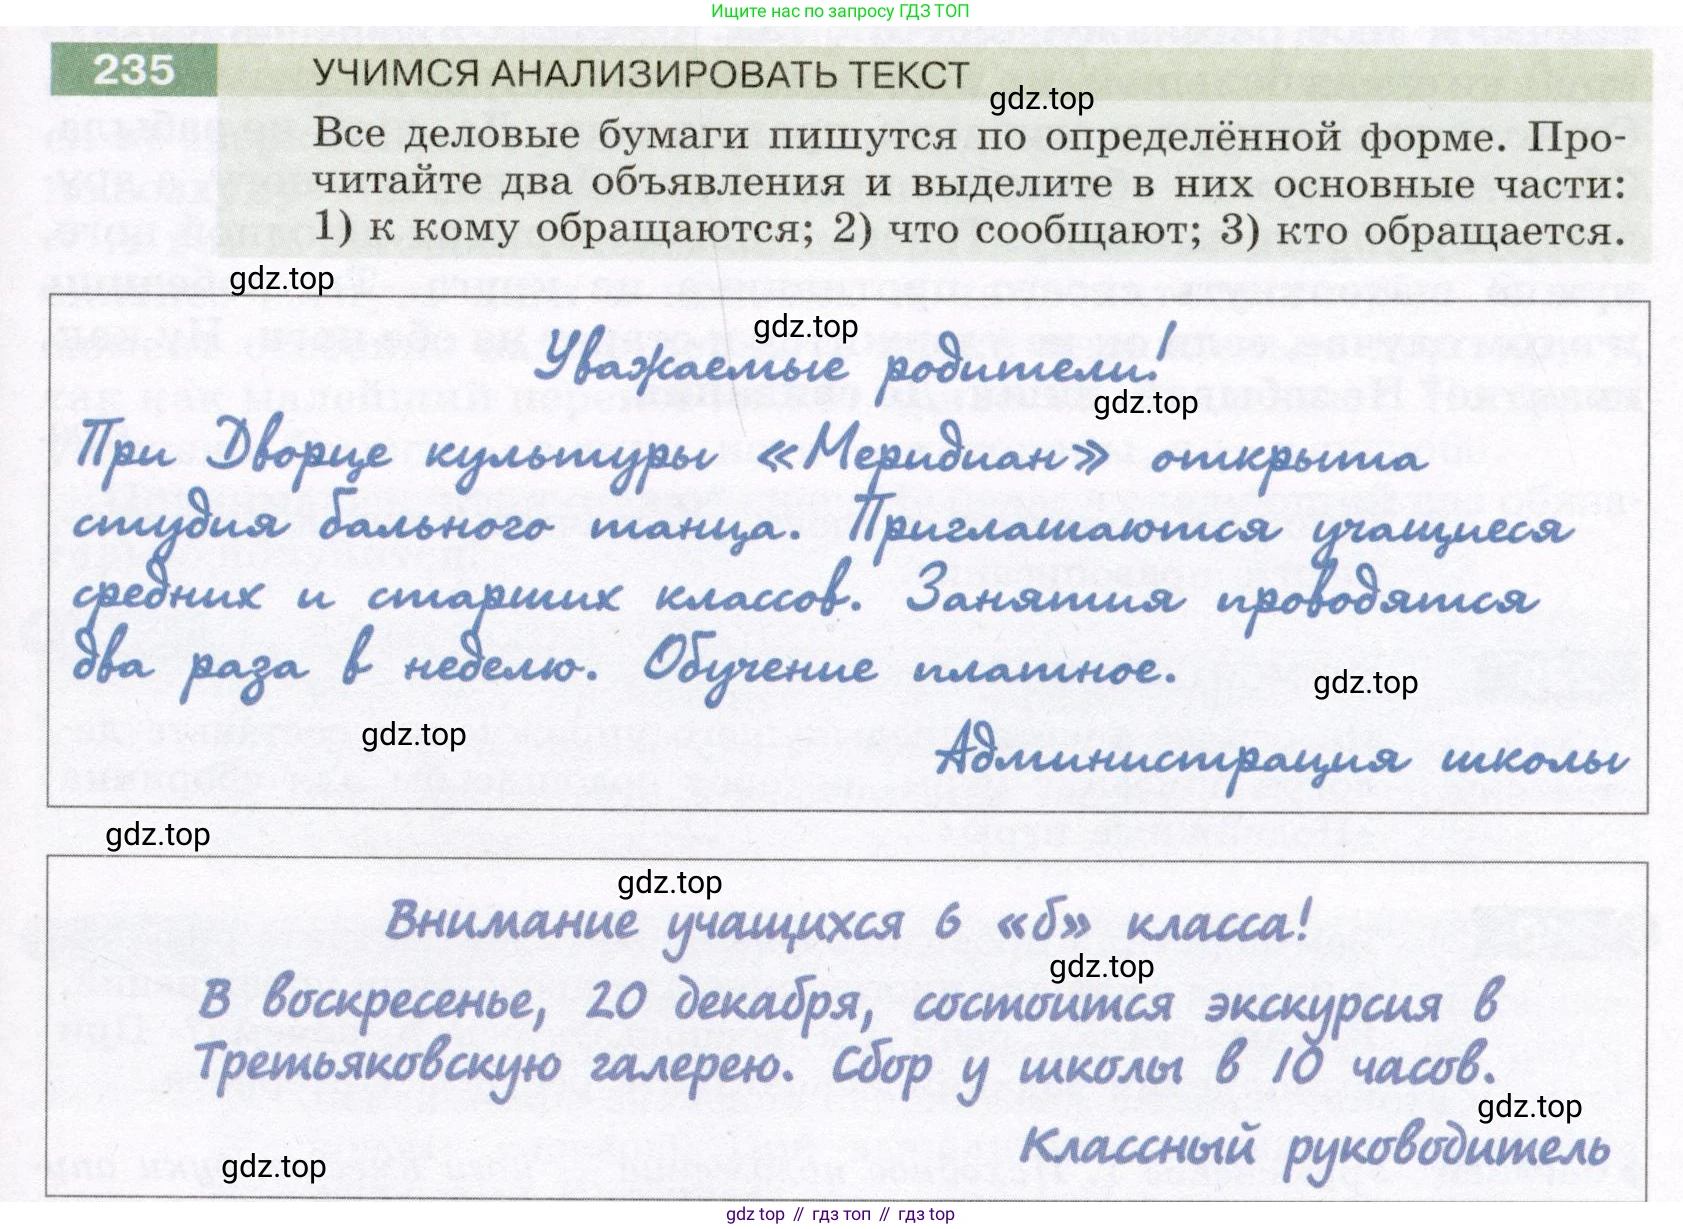 Ищите нас по запросу ГДЗ ТОП
235 УЧИМСЯ АНАЛИЗИРОВАТЬ ТЕКСТ
gdz.top
Все деловые бумаги пишутся по определённой форме. Про-
читайте два объявления и выделите в них основные части:
1) к кому обращаются; 2) что сообщают; 3) кто обращается.
gdz.top
gdz.top
Уважаемые родители!
gdz.top
При Дворце культуры «Меридиан» открыта
студия бального танца. Приглашаются учащиеся
средних и старших классов. Занятия проводятся
два раза в неделю. Обучение платное.
gdz.top
gdz.top
Администрация школы
gdz.top
gdz.top
Внимание учащихся 6 «б» класса!
gdz.top
В воскресенье, 20 декабря, состоится экскурсия в
Третьяковскую галерею. Сбор у школы в 10 часов.
gdz.top
Классный руководитель
gdz.top
gdz top // гдз топ // гдз top